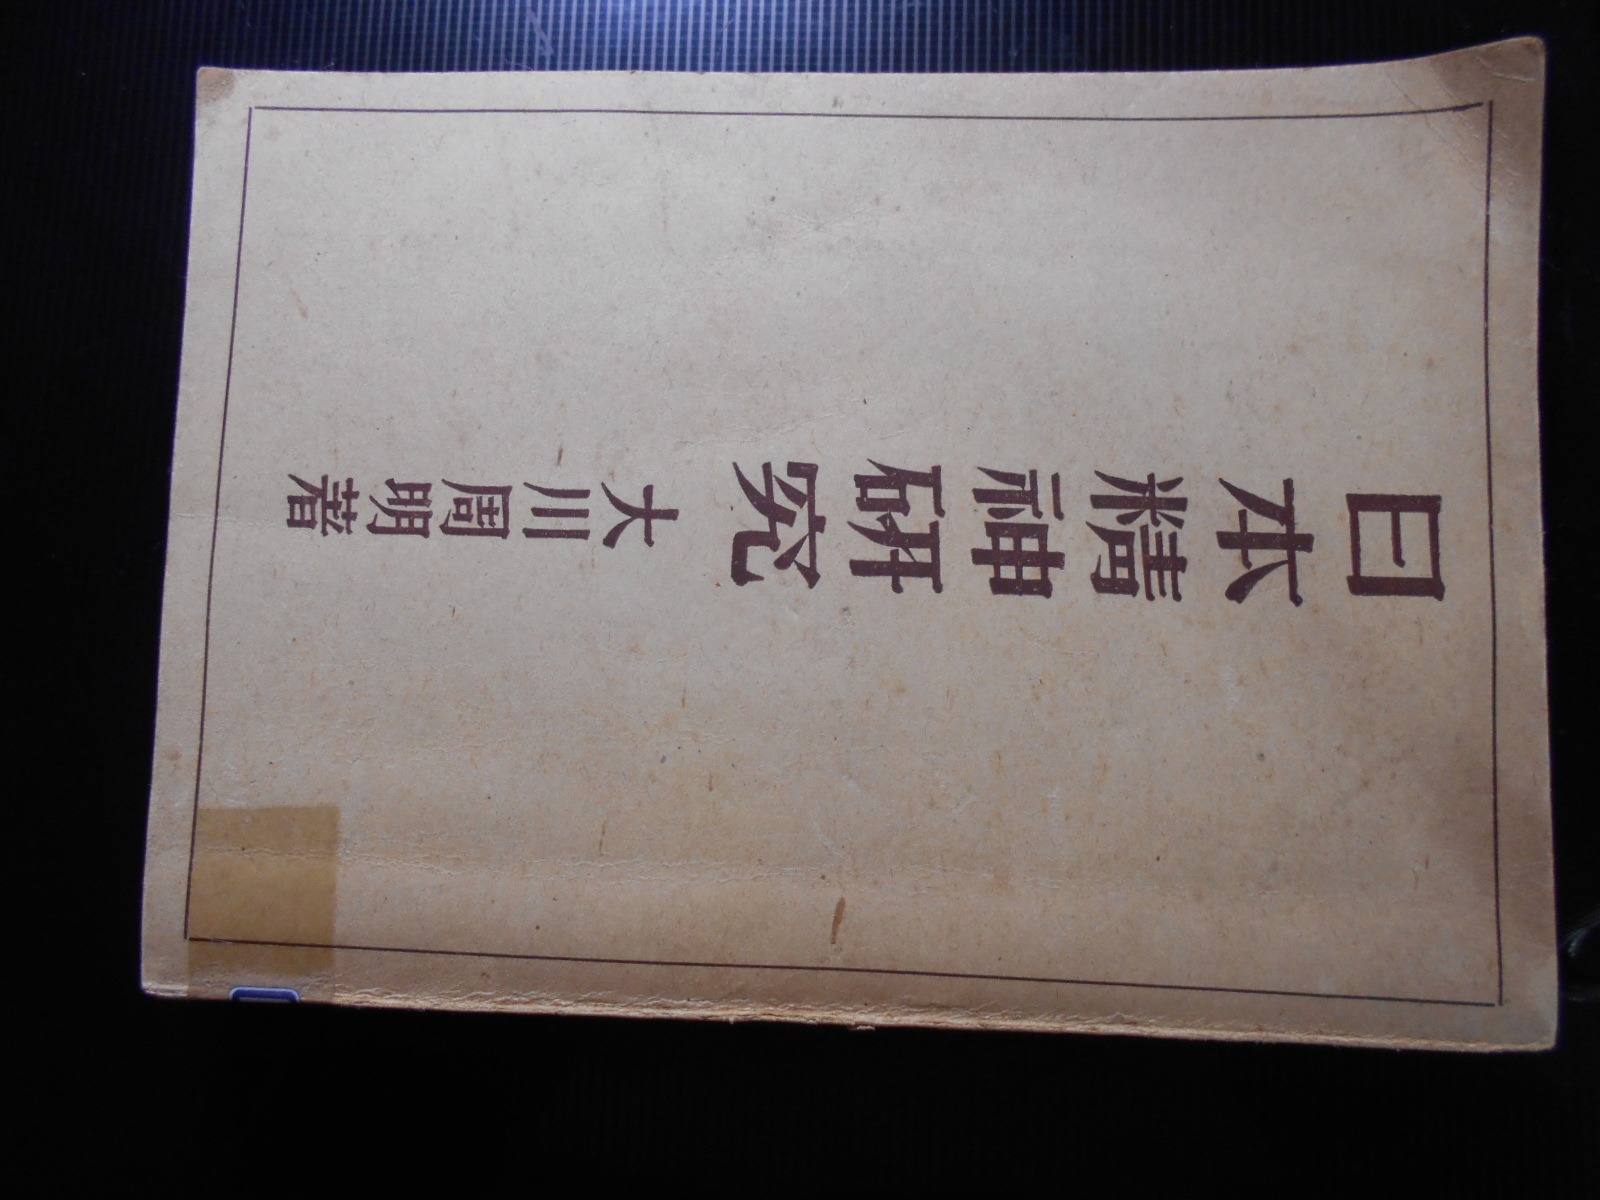 日本精神研究
大川周明著